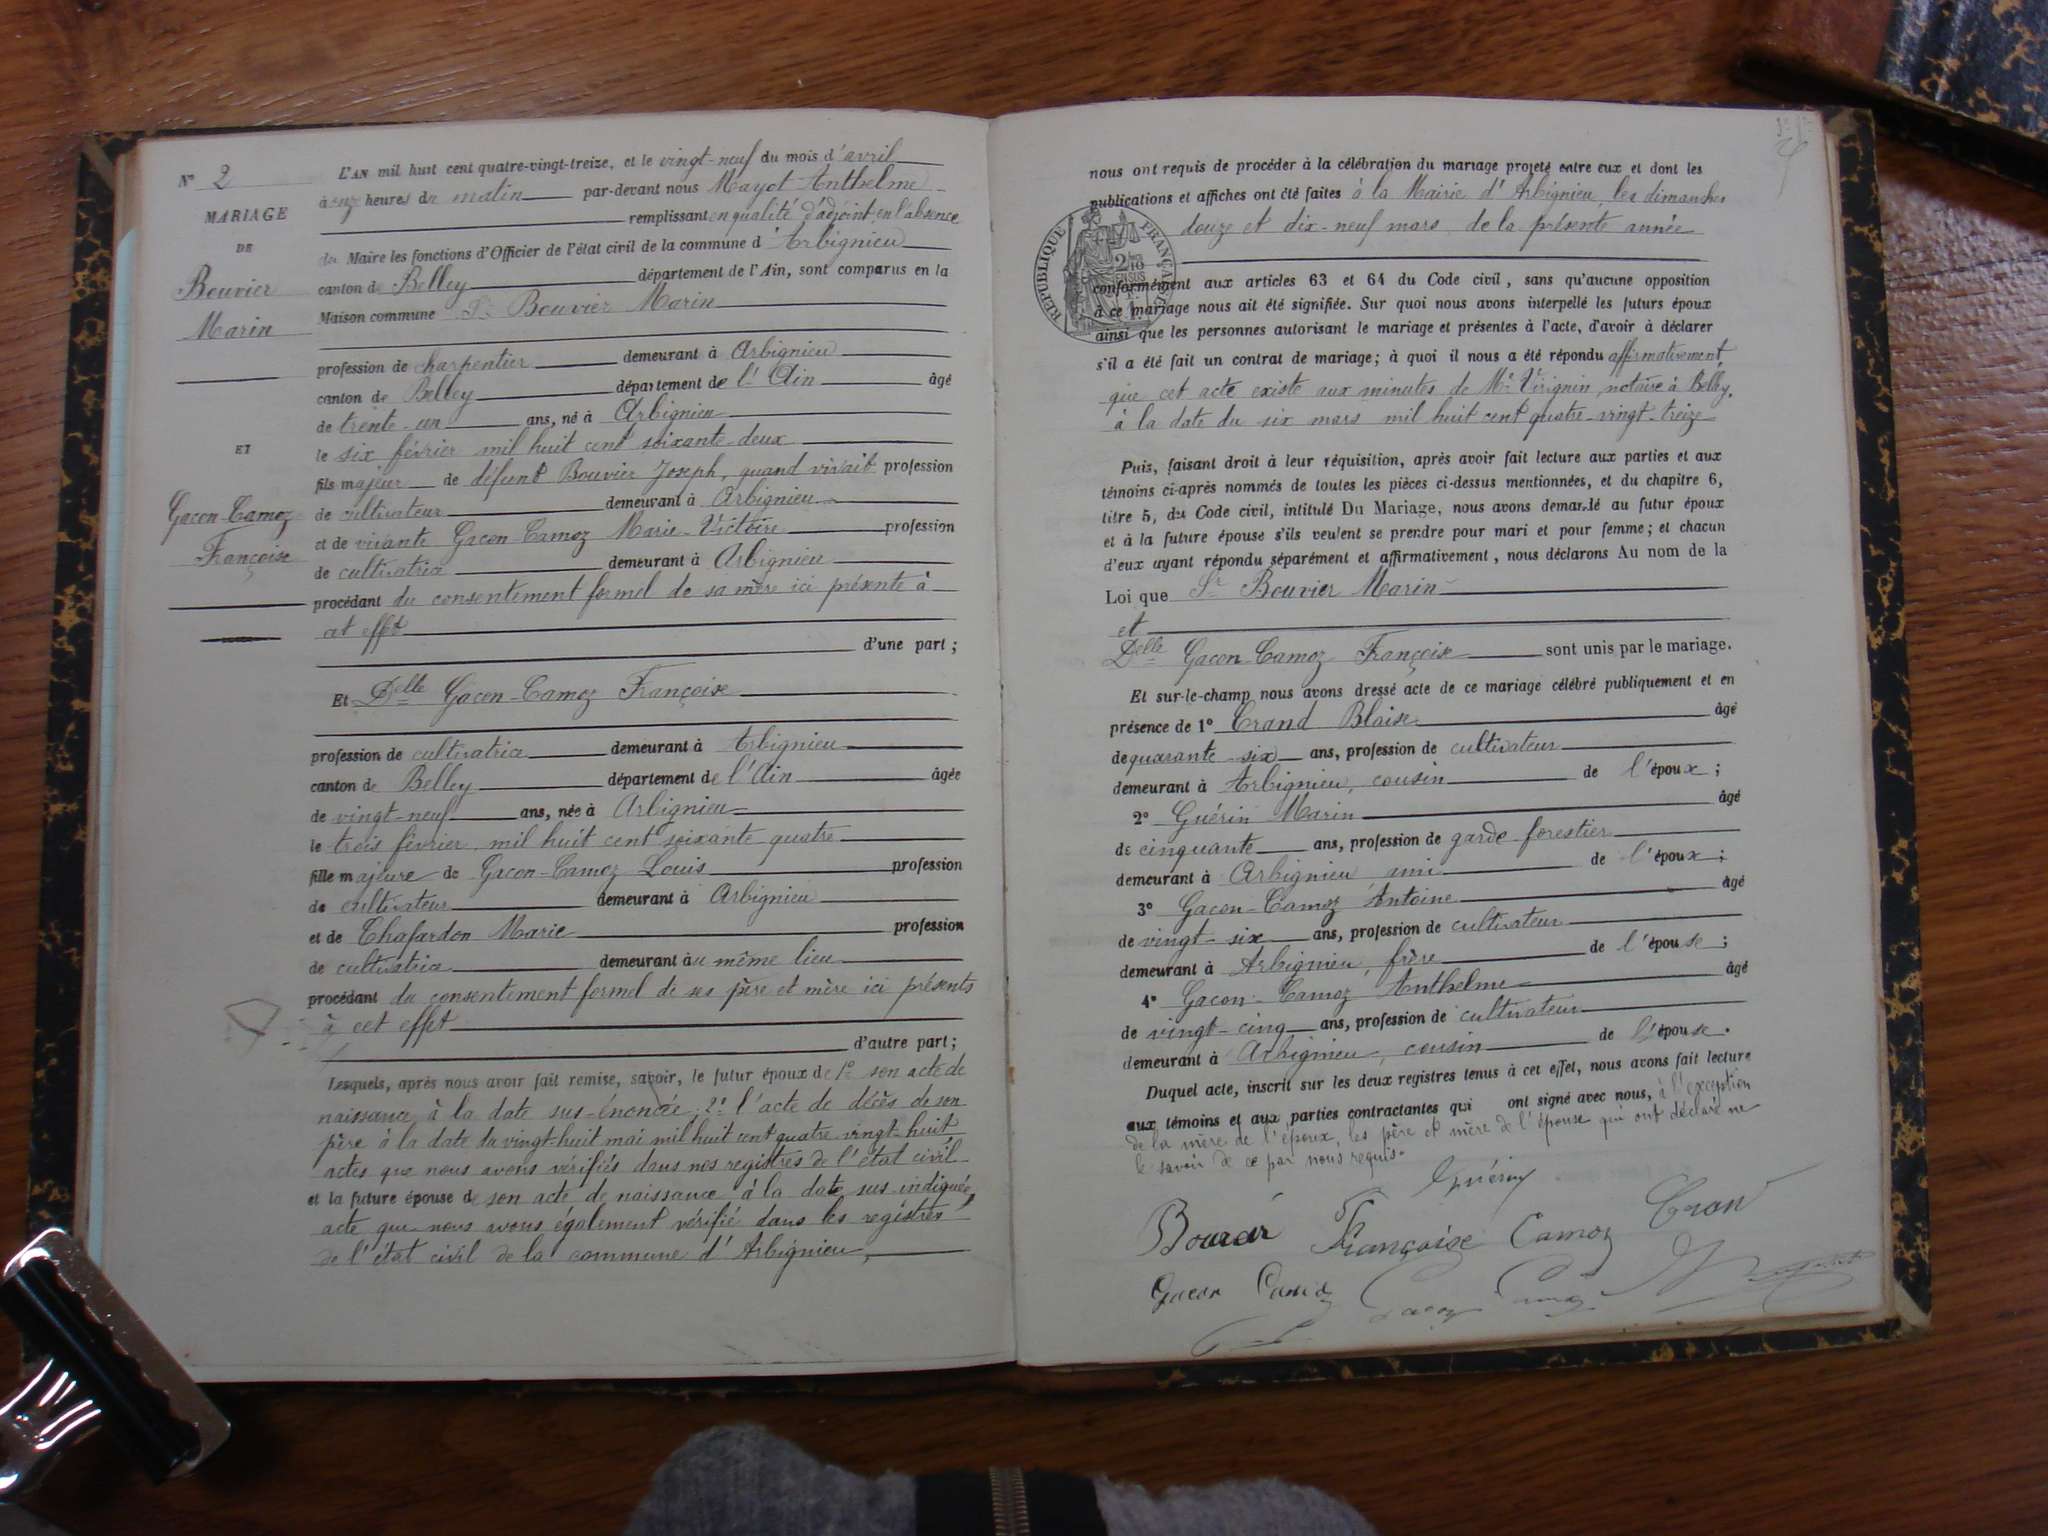 N° 2
MARIAGE
DE
Bouvier
Marin
ET
Gacon-Camoz
Françoise
L'AN mil huit cent quatre-vingt-treize, et le vingt-neuf du mois d'avril
à onze heures du matin par-devant nous Mayot Anthelme
remplissant en qualité d'adjoint en l'absence
du Maire les fonctions d'Officier de l'état civil de la commune d'Arbignieu
canton de Belley département de l'Ain, sont comparus en la
Maison commune Sr Bouvier Marin
profession de charpentier demeurant à Arbignieu
canton de Belley département de l'Ain âgé
de trente-un ans, né à Arbignieu
le six février mil huit cent soixante-deux
fils majeur de défunt Bouvier Joseph, quand vivait profession
de cultivateur demeurant à Arbignieu
et de vivante Gacon-Camoz Marie-Victoire profession
de cultivatrice demeurant à Arbignieu
procédant du consentement formel de sa mère ici présente à
cet effet
d'une part ;
Et Delle Gacon-Camoz Françoise
profession de cultivatrice demeurant à Arbignieu
canton de Belley département de l'Ain âgée
de vingt-neuf ans, née à Arbignieu
le trois février mil huit cent soixante quatre
fille majeure de Gacon-Camoz Louis profession
de cultivateur demeurant à Arbignieu
et de Chafardon Marie profession
de cultivatrice demeurant au même lieu
procédant du consentement formel de ses père et mère ici présents
à cet effet
d'autre part ;
Lesquels, après nous avoir fait remise, savoir, le futur époux de 1° son acte de
naissance à la date sus-énoncée ; 2° l'acte de décès de son
père à la date du vingt-huit mai mil huit cent quatre-vingt-huit,
actes que nous avons vérifiés dans nos registres de l'état civil
et la future épouse de son acte de naissance à la date sus-indiquée,
acte que nous avons également vérifié dans les registres
de l'état civil de la commune d'Arbignieu,
nous ont requis de procéder à la célébration du mariage projeté entre eux et dont les
publications et affiches ont été faites à la Mairie d'Arbignieu, les dimanches
douze et dix-neuf mars de la présente année
RÉPUBLIQUE FRANÇAISE
2/10
EN SUS
conformément aux articles 63 et 64 du Code civil, sans qu'aucune opposition
à ce mariage nous ait été signifiée. Sur quoi nous avons interpellé les futurs époux
ainsi que les personnes autorisant le mariage et présentes à l'acte, d'avoir à déclarer
s'il a été fait un contrat de mariage ; à quoi il nous a été répondu affirmativement,
que cet acte existe aux minutes de Me Virignin, notaire à Belley,
à la date du six mars mil huit cent quatre-vingt-treize
Puis, faisant droit à leur réquisition, après avoir fait lecture aux parties et aux
témoins ci-après nommés de toutes les pièces ci-dessus mentionnées, et du chapitre 6,
titre 5, du Code civil, intitulé Du Mariage, nous avons demandé au futur époux
et à la future épouse s'ils veulent se prendre pour mari et pour femme ; et chacun
d'eux ayant répondu séparément et affirmativement, nous déclarons Au nom de la
Loi que Sr Bouvier Marin
et
Delle Gacon-Camoz Françoise sont unis par le mariage.
Et sur-le-champ nous avons dressé acte de ce mariage célébré publiquement et en
présence de 1° Crand Blaise âgé
de quarante-six ans, profession de cultivateur
demeurant à Arbignieu, cousin de l'époux ;
2° Guérin Marin âgé
de cinquante ans, profession de garde forestier
demeurant à Arbignieu ami de l'époux ;
3° Gacon-Camoz Antoine âgé
de vingt-six ans, profession de cultivateur
demeurant à Arbignieu, frère de l'épouse ;
4° Gacon-Camoz Anthelme âgé
de vingt-cinq ans, profession de cultivateur
demeurant à Arbignieu, cousin de l'épouse.
Duquel acte, inscrit sur les deux registres tenus à cet effet, nous avons fait lecture
aux témoins et aux parties contractantes qui ont signé avec nous, à l'exception
de la mère de l'époux, les père et mère de l'épouse qui ont déclaré ne
le savoir de ce par nous requis.
Guérin
Françoise Camoz
Gacon Camoz